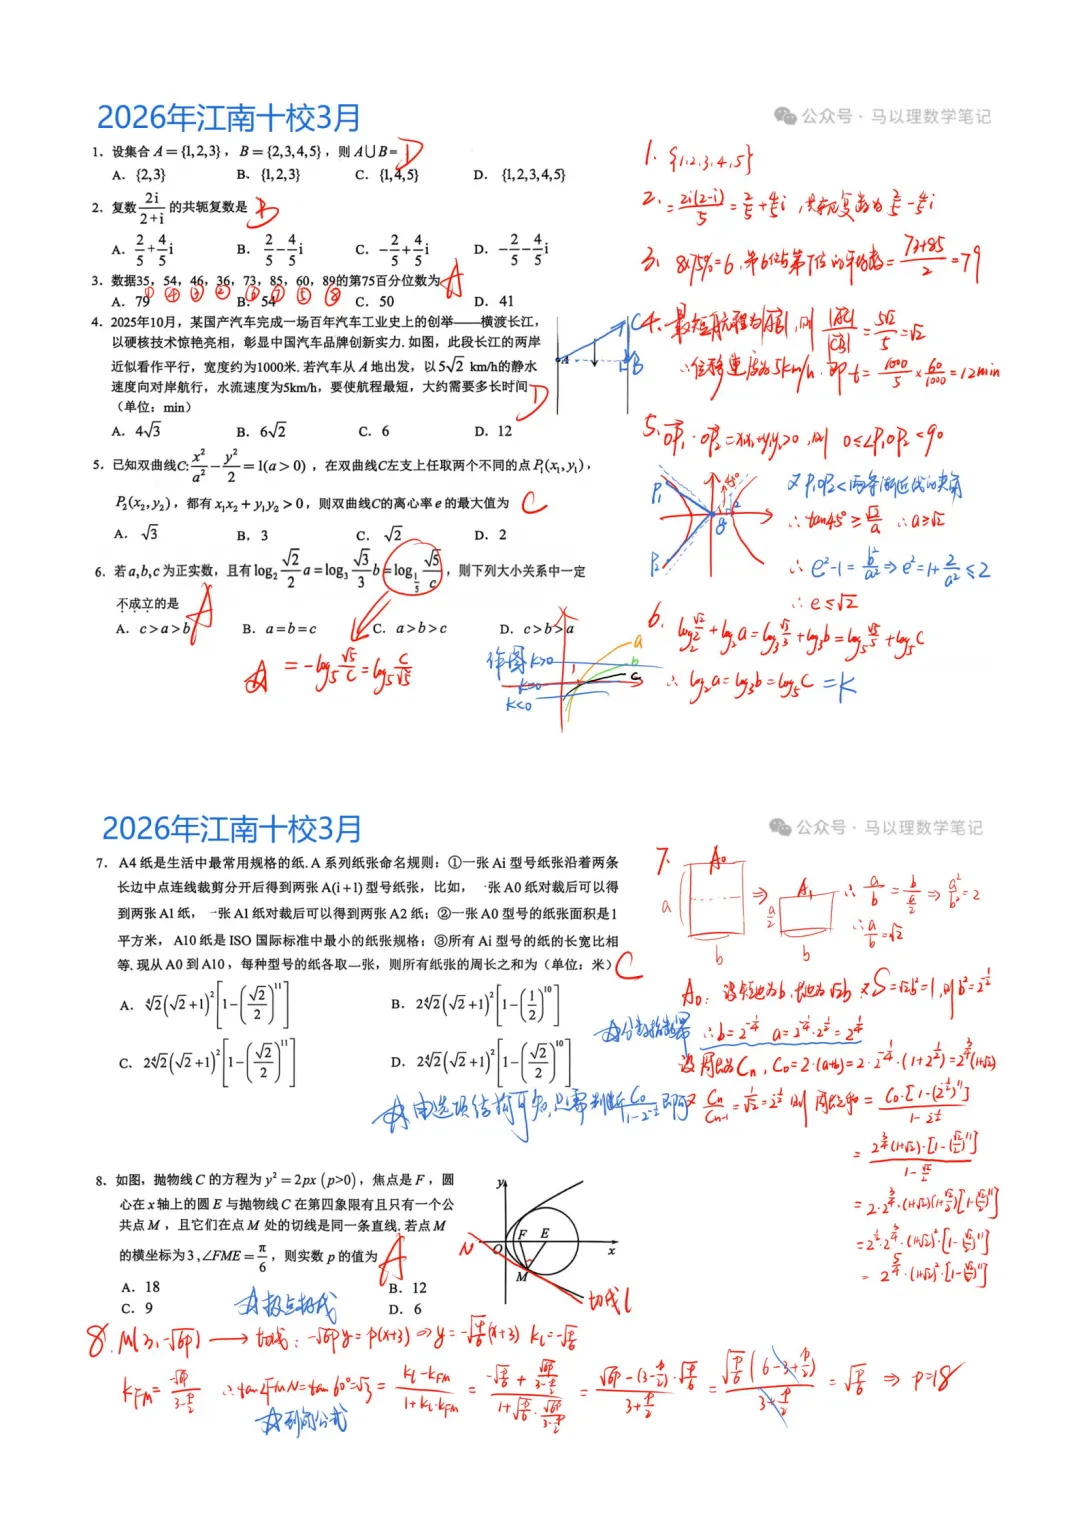 2026年江南十校3月
公众号·马以理数学笔记
1. 设集合 A={1,2,3}，B={2,3,4,5}，则 A∪B= D
A. {2,3} B. {1,2,3} C. {1,4,5} D. {1,2,3,4,5}
2. 复数 2i/(2+i) 的共轭复数是 B
A. 2/5+4/5i B. 2/5-4/5i C. -2/5+4/5i D. -2/5-4/5i
3. 数据35，54，46，36，73，85，60，89的第75百分位数为 A
① ④ ③ ② ⑥ ⑦ ⑤ ⑧
A. 79 B. 54 C. 50 D. 41
4. 2025年10月，某国产汽车完成一场百年汽车工业史上的创举——横渡长江，
以硬核技术惊艳亮相，彰显中国汽车品牌创新实力.如图，此段长江的两岸
近似看作平行，宽度约为1000米.若汽车从 A 地出发，以5√2 km/h的静水
速度向对岸航行，水流速度为5km/h，要使航程最短，大约需要多长时间 D
（单位：min）
A. 4√3 B. 6√2 C. 6 D. 12
A
B
C
5. 已知双曲线C: x²/a² - y²/2 =1(a>0)，在双曲线C左支上任取两个不同的点P₁(x₁,y₁)，
P₂(x₂,y₂)，都有 x₁x₂+y₁y₂>0，则双曲线C的离心率 e 的最大值为 C
A. √3 B. 3 C. √2 D. 2
6. 若a,b,c为正实数，且有log₂ √2/2 a=log₃ √3/3 b=log_{1/5} √5/c，则下列大小关系中一定
不成立的是 A
A. c>a>b B. a=b=c C. a>b>c D. c>b>a
=-log₅ √5/c = log₅ c/√5
作图 k>0
k=0
k<0
a
b
c
1. {1,2,3,4,5}
2. = 2i(2-i)/5 = 2/5+4/5i，共轭复数为 2/5-4/5i
3. 8×75%=6，第6位与第7位的平均数= (73+85)/2 =79
4. 最短航程为|AB|，则 |AC|/|CB| = 5√2/5 = √2
∴位移速度为5km/h. 即 t= 1000/5 × 60/1000 =12min
5. OP₁·OP₂=x₁x₂+y₁y₂>0，则 0≤∠P₁OP₂<90
又P₁OP₂<两条渐近线的夹角
P₁
P₂
45°
∴tan45°≥ √2/a ∴a≥√2
∴e²-1= b²/a² ⇒e²=1+ 2/a² ≤2
∴e≤√2
6. log₂ √2/2 +log₂a=log₃ √3/3 +log₃b=log₅ √5/5 +log₅c
∴log₂a=log₃b=log₅c=k
2026年江南十校3月
公众号·马以理数学笔记
7. A4 纸是生活中最常用规格的纸.A 系列纸张命名规则：①一张 Ai 型号纸张沿着两条
长边中点连线裁剪分开后得到两张 A(i+1) 型号纸张，比如，一张 A0 纸对裁后可以得
到两张 A1 纸，一张 A1 纸对裁后可以得到两张 A2 纸；②一张 A0 型号的纸张面积是1
平方米，A10 纸是 ISO 国际标准中最小的纸张规格；③所有 Ai 型号的纸的长宽比相
等.现从 A0 到 A10，每种型号的纸各取一张，则所有纸张的周长之和为（单位：米） C
A. ⁴√2(√2+1)²[1-(√2/2)¹¹] B. 2⁴√2(√2+1)²[1-(1/2)¹⁰]
C. 2⁴√2(√2+1)²[1-(√2/2)¹¹] D. 2⁴√2(√2+1)²[1-(√2/2)¹⁰]
7. A₀ a b ⇒ A₁ a/2 b ∴ a/b = b/(a/2) ⇒ a²/b²=2
∴ a/b =√2
A₀：设短边为b，长边为√2b，又S=√2b²=1，则b²=2^{-1/2}
分数指数幂 ∴b=2^{-1/4} a=2^{-1/4}·2^{1/2}=2^{1/4}
设周长为Cₙ，C₀=2·(a+b)=2·2^{-1/4}·(1+2^{1/2})=2^{3/4}(1+√2)
由选项结构可知，只需判断 C₀/(1-2^{-1/2}) 即可
又 Cₙ/Cₙ₋₁ = 1/√2 =2^{-1/2} 则周长和= C₀·[1-(2^{-1/2})¹¹]/(1-2^{-1/2})
= 2^{3/4}(1+√2)·[1-(√2/2)¹¹]/(1-√2/2)
=2·2^{3/4}·(1+√2)(1+√2/2)[1-(√2/2)¹¹]
=2^{1/2}·2^{3/4}·(1+√2)²·[1-(√2/2)¹¹]
=2^{5/4}·(1+√2)²·[1-(√2/2)¹¹]
8. 如图，抛物线 C 的方程为 y²=2px (p>0)，焦点是 F，圆
心在 x 轴上的圆 E 与抛物线 C 在第四象限有且只有一个公
共点 M，且它们在点 M 处的切线是同一条直线.若点 M
的横坐标为3,∠FME= π/6，则实数 p 的值为 A
A. 18 B. 12
C. 9 D. 6
y
N O F E x
M
切线l
极点极线
8. M(3,-√6p) → 切线：-√6p y=p(x+3) ⇒ y=-√(p/6)(x+3) k_l=-√(p/6)
k_FM= √6p/(3-p/2) ∴tan∠FMN=tan60°=√3= (k_l-k_FM)/(1+k_l·k_FM) = (-√(p/6)+√6p/(3-p/2))/(1+√(p/6)·√6p/(3-p/2)) = (√6p-(3-p/2)·√(p/6))/(3+p/2) = √(p/6)(6-3+p/2)/(3+p/2) =√(p/6) ⇒ p=18
到角公式